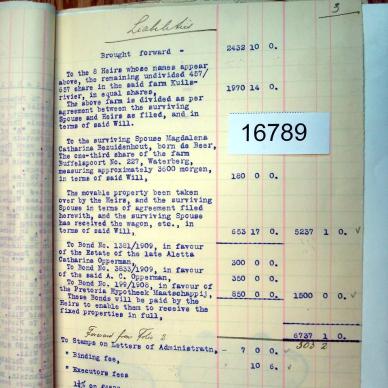 3
Liabilities
Brought forward - 2432 10 0.
To the 8 Heirs whose names appear
above, the remaining undivided 457/
657 share in the said farm Kuils-
rivier, in equal shares, 1970 14 0.
The above farm is divided as per
agreement between the surviving
Spouse and Heirs as filed, and in
terms of said Will.
16789
To the surviving Spouse Magdalena
Catharina Bezuidenhout, born de Beer,
The one-third share of the farm
Buffelspoort No. 227, Waterberg,
measuring approximately 3600 morgen,
in terms of said Will, 180 0 0.
The movable property been taken
over by the Heirs, and the surviving
Spouse in terms of agreement filed
herewith, and the surviving Spouse
has received the wagon, etc., in
terms of said Will, 653 17 0. 5237 1 0.
To Bond No. 1381/1909, in favour
of the Estate of the late Aletta
Catharina Opperman, 300 0 0.
To Bond No. 3833/1909, in favour
of the said A. C. Opperman, 350 0 0.
To Bond No. 199/1908, in favour of
the Pretoria Hypotheek Maatschappij, 850 0 0. 1500 0 0.
These Bonds will be paid by the
Heirs to enable them to receive the
fixed properties in full,
6737 1 0.
Forward from Folio 2 303 2
To Stamps on Letters of Administratn, - 7 0 0.
" Binding fee, - 10 6.
" Executors fees